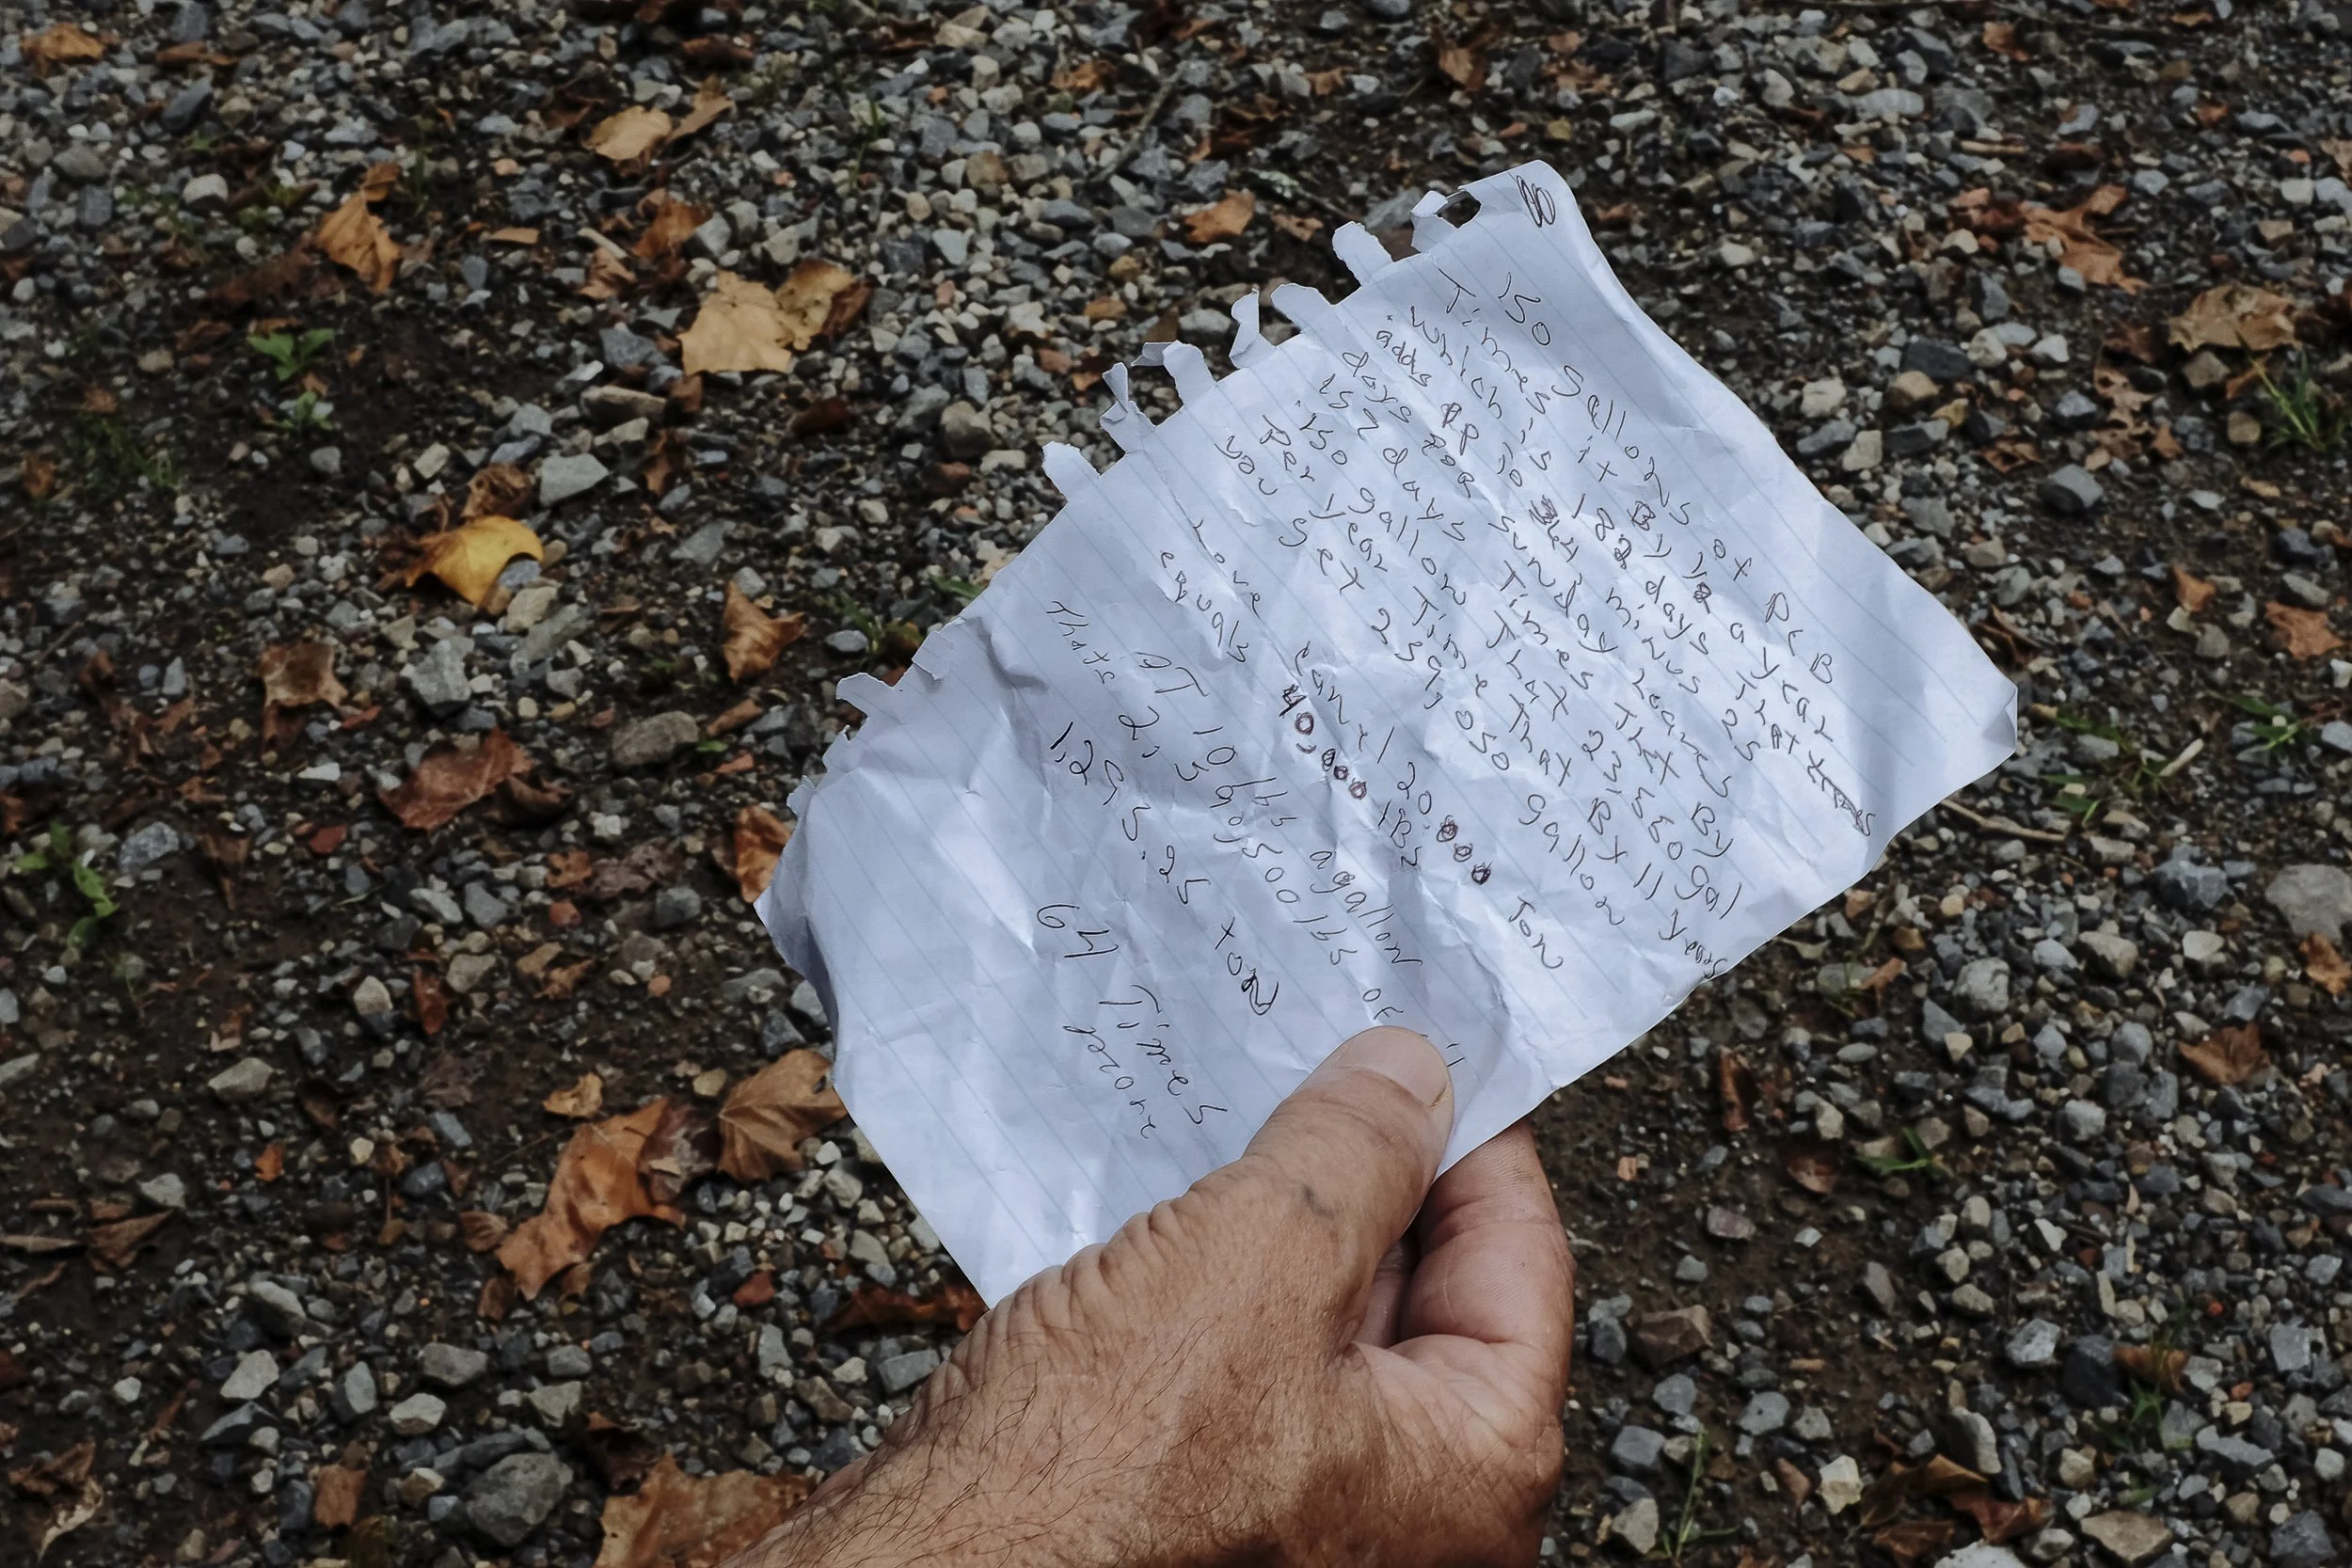 150 gallons of PCB
Times it By 1/2 a year
which is 182 days that
adds up to minus 25
days for Sunday leaves
157 days Times That By
150 gallon That 23,550 gal
per year Time That By 11 years
you get 259,050 gallon
1 one can 1 20,000 Ton
equals 40,000 lBs
AT 10 lbs a gallon
Thats 2,590,500 lbs of
1,295.25 ton
64 Times